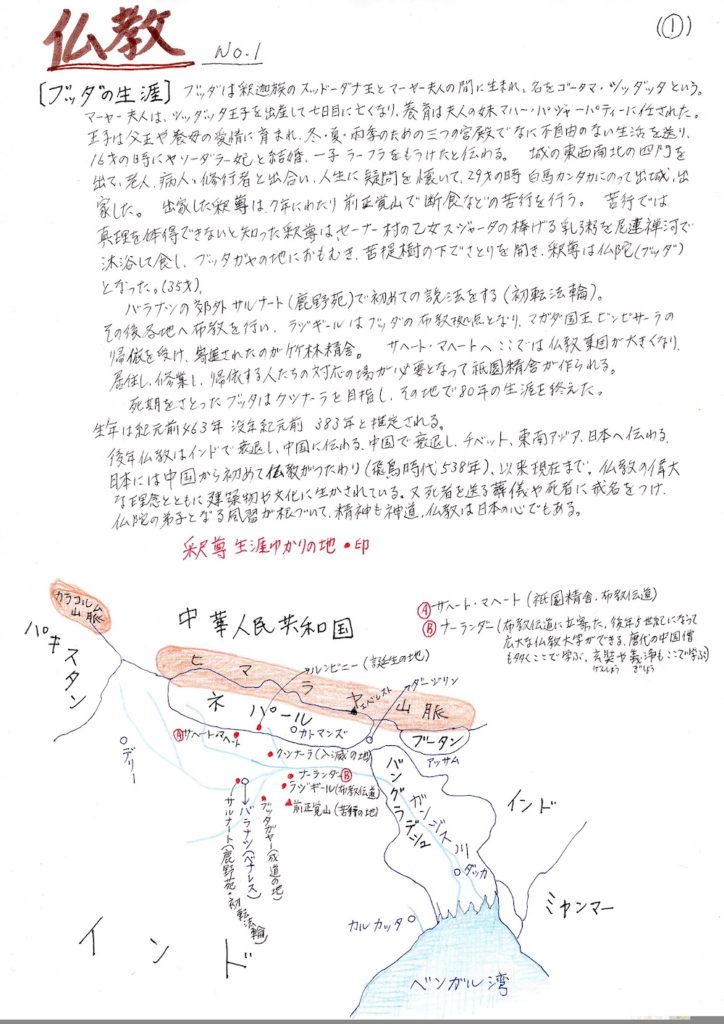 (①)
仏教 No.1
[ブッダの生涯] ブッダは釈迦族のスッドーダナ王とマーヤー夫人の間に生まれ、名をゴータマ・シッダッタという。
マーヤー夫人は、シッダッタ王子を出産して七日目に亡くなり、養育は夫人の妹マハー・パジャーパティーに任された。
王子は父王や養母の愛情に育まれ、冬・夏・雨季のための三つの宮殿でなに不自由のない生活を送り、
16才の時にヤソーダラー妃と結婚、一子ラーフラをもうけたと伝わる。 城の東西南北の四門を
出て、老人、病人、修行者と出合い、人生に疑問を懐いて、29才の時 白馬カンタカにのって出城、出
家した。 出家した釈尊は、7年にわたり前正覚山で断食などの苦行を行う。 苦行では
真理を体得できないと知った釈尊は、セーナー村の乙女スジャータの捧げる乳粥を尼連禅河で
沐浴して食し、ブッダガヤの地におもむき、菩提樹の下でさとりを開き、釈尊は仏陀(ブッダ)
となった。(35才)
バラナシの郊外サルナート(鹿野苑)で初めての説法をする(初転法輪)。
その後各地へ布教を行い、ラジギールはブッダの布教拠点となり、マガダ国王ビンビサーラの
帰依を受け、寄進されたのが竹林精舎。 サヘート・マヘートへ ここでは仏教集団が大きくなり、
居住し、修業し、帰依する人たちの対応の場が必要となって祇園精舎が作られる。
死期をさとったブッダはクシナーラを目指し、その地で80年の生涯を終えた。
生年は紀元前463年 没年紀元前 383年と推定される。
後年仏教はインドで衰退し、中国に伝わる、中国で衰退し、チベット、東南アジア、日本へ伝わる、
日本には中国から初めて仏教がつたわり(飛鳥時代538年)、以来現在まで。仏教の偉大
な理念とともに建築物や文化に生かされている。又死者を送る葬儀や死者に戒名をつけ、
仏陀の弟子となる風習が根づいて、精神も神道、仏教は日本の心でもある。
釈尊生涯ゆかりの地 ●印
Ⓐ サヘート・マヘート (祇園精舎・布教伝道)
Ⓑ ナーランダー (布教伝道に立寄った、後年5世紀になって
広大な仏教大学ができる、唐代の中国僧
も多くここで学ぶ、玄奘や義浄もここで学ぶ)
げんじょう ぎじょう
カラコルム
山脈
中華人民共和国
パキスタン
ヒマラ
ヤ
山脈
ルンビニー (誕生の地)
エベレスト
ダージリン
ネパール
カトマンズ
ブータン
アッサム
Ⓐ サヘート・マヘート
デリー
クシナーラ (入滅の地)
ナーランダー Ⓑ
ラジギール (布教伝道)
前正覚山 (苦行の地)
ブッダガヤー (成道の地)
バラナシ (ベナレス)
サルナート (鹿野苑・初転法輪)
バングラデシュ
ガンジス川
インド
ダッカ
ミャンマー
カルカッタ
インド
ベンガル湾